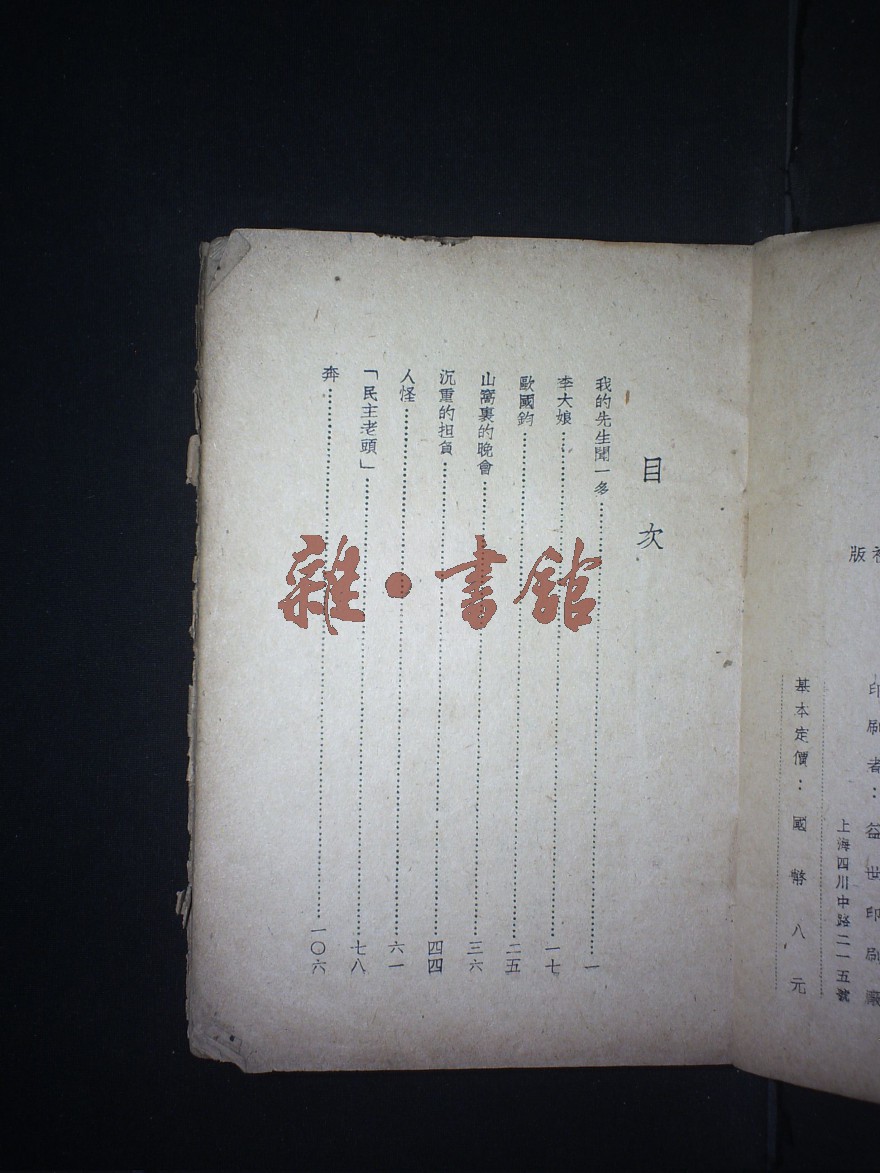 版
印刷者：益世印刷廠
上海四川中路二一五號
基本定價：國幣八元
目次
我的先生聞一多⋯⋯一
李大娘⋯⋯一七
歐國鈞⋯⋯二五
山窩裏的晚會⋯⋯三六
沉重的担負⋯⋯四四
人怪⋯⋯六一
「民主老頭」⋯⋯七八
奔⋯⋯一〇六
雜·書館